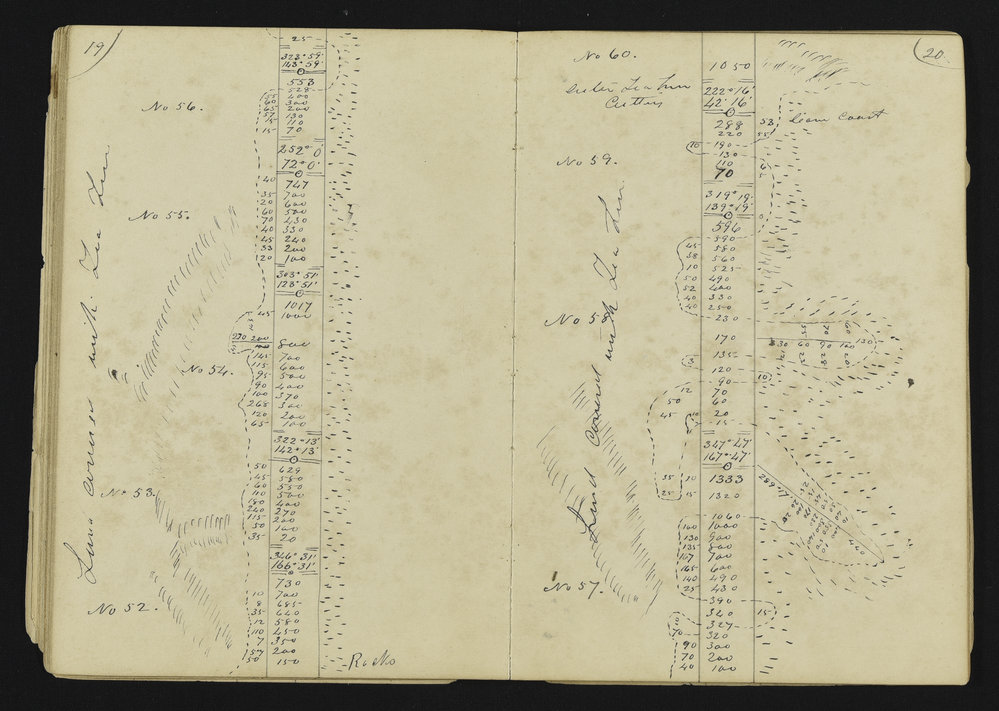 19
25
323° 59'
143° 59'
553
528
55 400
60 300
65 200
57 130
15 110
15 70
No 56.
252° 0'
72° 0'
747
40
35 700
20 600
60 500
70 430
40 330
45 240
33 200
120 100
No 55.
303° 51'
123° 51'
1017
45 1000
230 200
800
145 700
115 600
95 500
90 400
100 370
268 300
120 200
65 100
No 54.
322° 13'
142° 13'
50 629
45 580
60 550
110 500
180 400
240 270
115 200
50 100
35 20
No 53.
346° 31'
166° 31'
730
10 700
8 685
35 640
12 580
110 450
7 350
157 200
50 150
No 52.
Rocks
Land covered with Tea Tree
20
No 60.
1050
Cutters
222° 16'
42° 16'
288 53
220 55
10 190
130
110
70
Coast
No 59.
319° 19'
139° 19'
596
590
45 580
58 560
10 525
50 490
52 400
40 330
40 250
230
170
135
120
90 10
12 70
50 60
45 10 20
15
55 70 60
130 60 90 120 130
25 28 20
No 58
347° 47'
167° 47'
35 10 1333
25 15 1320
1060
160 1000
130 900
135 800
107 700
165 600
140 490
25 430
390
340 15
327
70 320
90 300
70 200
40 100
No 57.
Land covered with Tea Tree